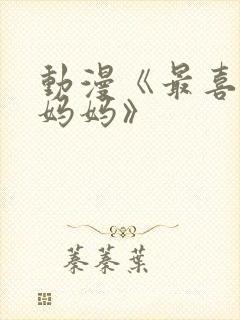 動漫《最喜
妈妈》
蓁蓁葉